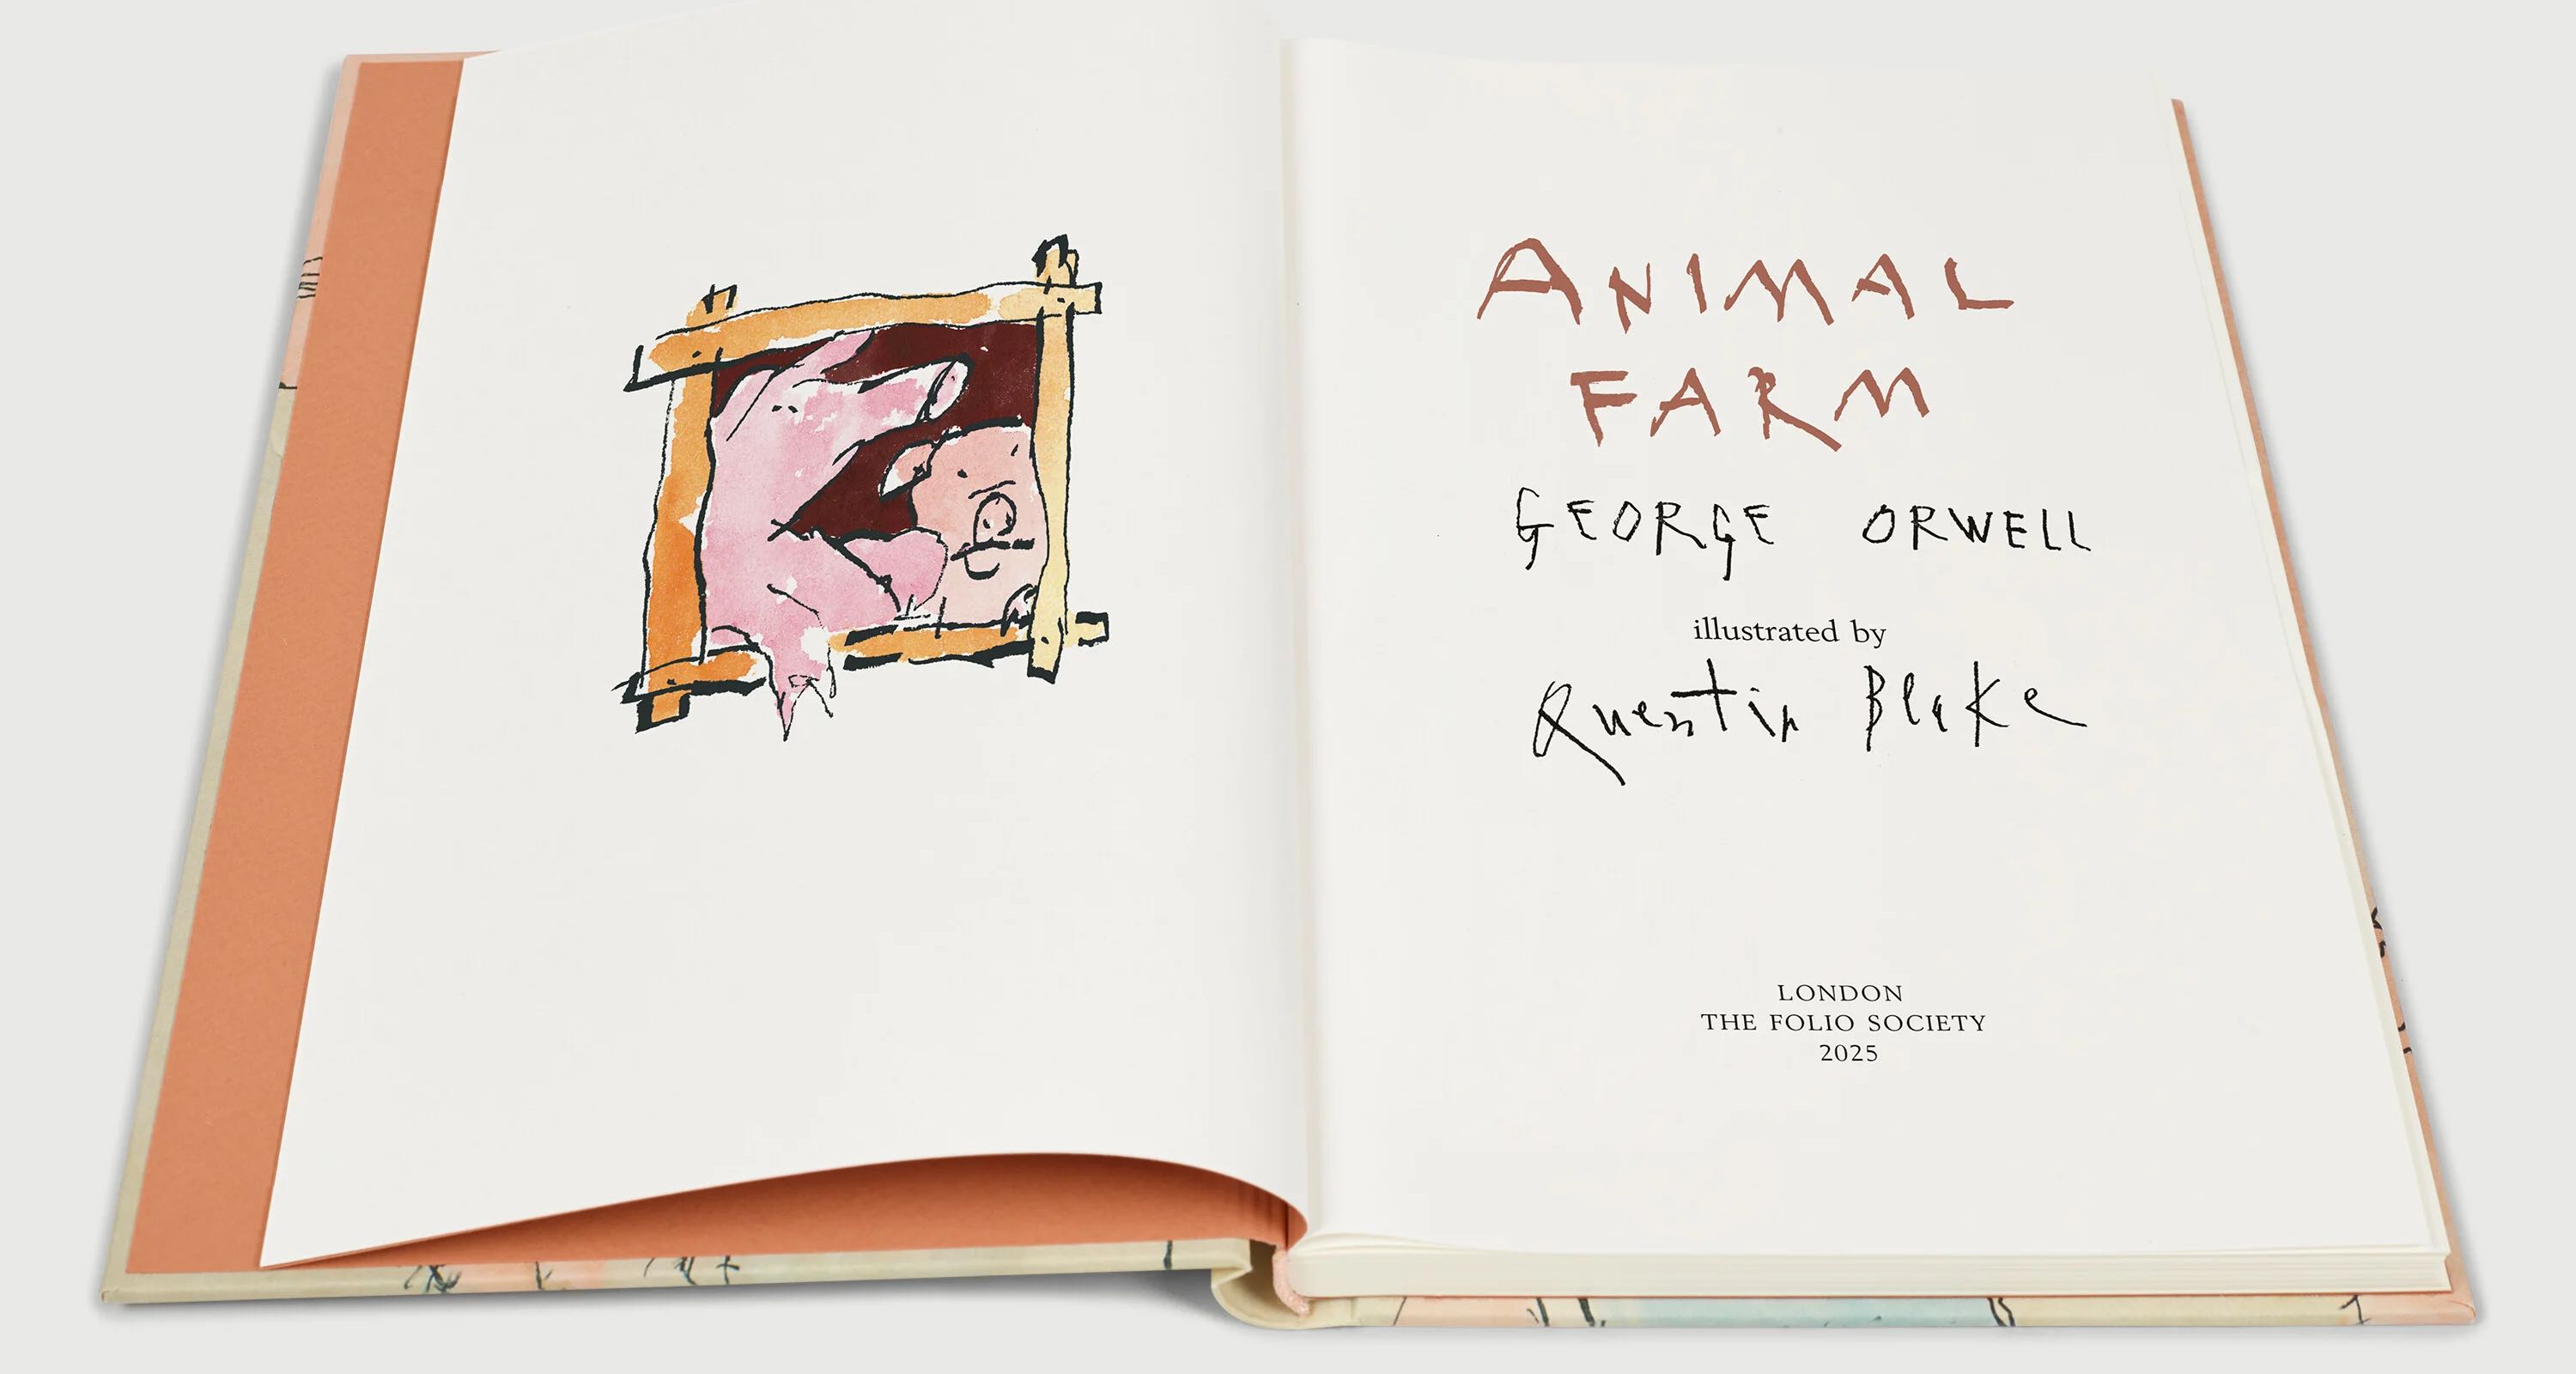 ANIMAL
FARM
GEORGE ORWELL
illustrated by
Quentin Blake
LONDON
THE FOLIO SOCIETY
2025